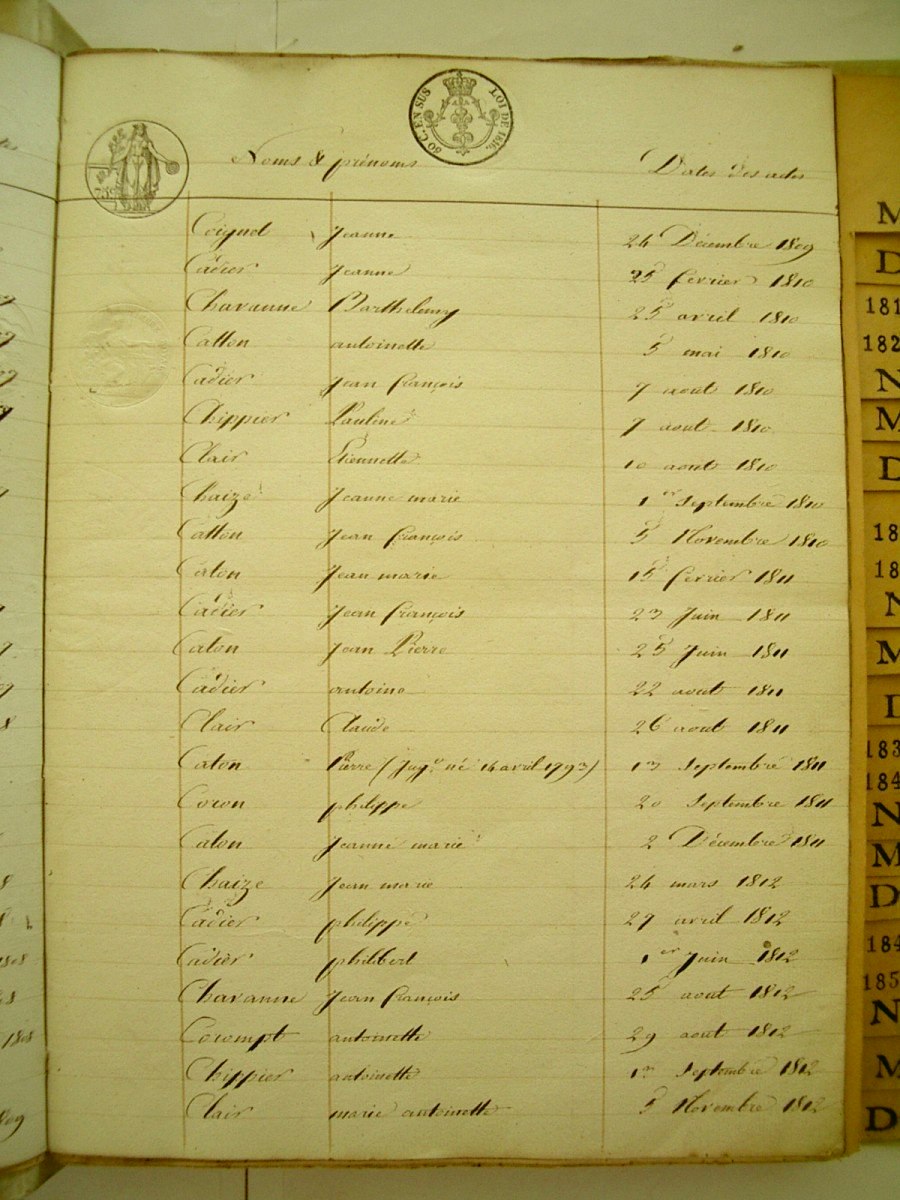 50 C. EN SUS LOI DE 1816.
75c
Noms & prénoms Dates des actes
Coignet Jeanne 24 Décembre 1809
Cadier Jeanne 25 fevrier 1810
Chavanne Barthelemy 25 avril 1810
Catton antoinette 5 mai 1810
Cadier Jean françois 7 aout 1810
Chippier Pauline 7 aout 1810
Clair Etiennette 10 aout 1810
Chaize Jeanne marie 1er Septembre 1810
Catton Jean françois 5 Novembre 1810
Caton Jean marie 15 fevrier 1811
Cadier Jean françois 23 Juin 1811
Caton Jean Pierre 25 Juin 1811
Cadier antoine 22 aout 1811
Clair Claude 26 aout 1811
Caton Pierre (Jugt né 14 avril 1793) 13 Septembre 1811
Coron philippe 20 Septembre 1811
Caton Jeanne marie 2 Décembre 1811
Chaize Jean marie 24 mars 1812
Cadier philippe 29 avril 1812
Cadier philibert 1er Juin 1812
Chavanne Jean françois 25 aout 1812
Corompt antoinette 29 aout 1812
Chippier antoinette Septembre 1812
Clair marie antoinette 5 Novembre 1812
M
D
N
M
D
N
M
N
M
D
N
M
D